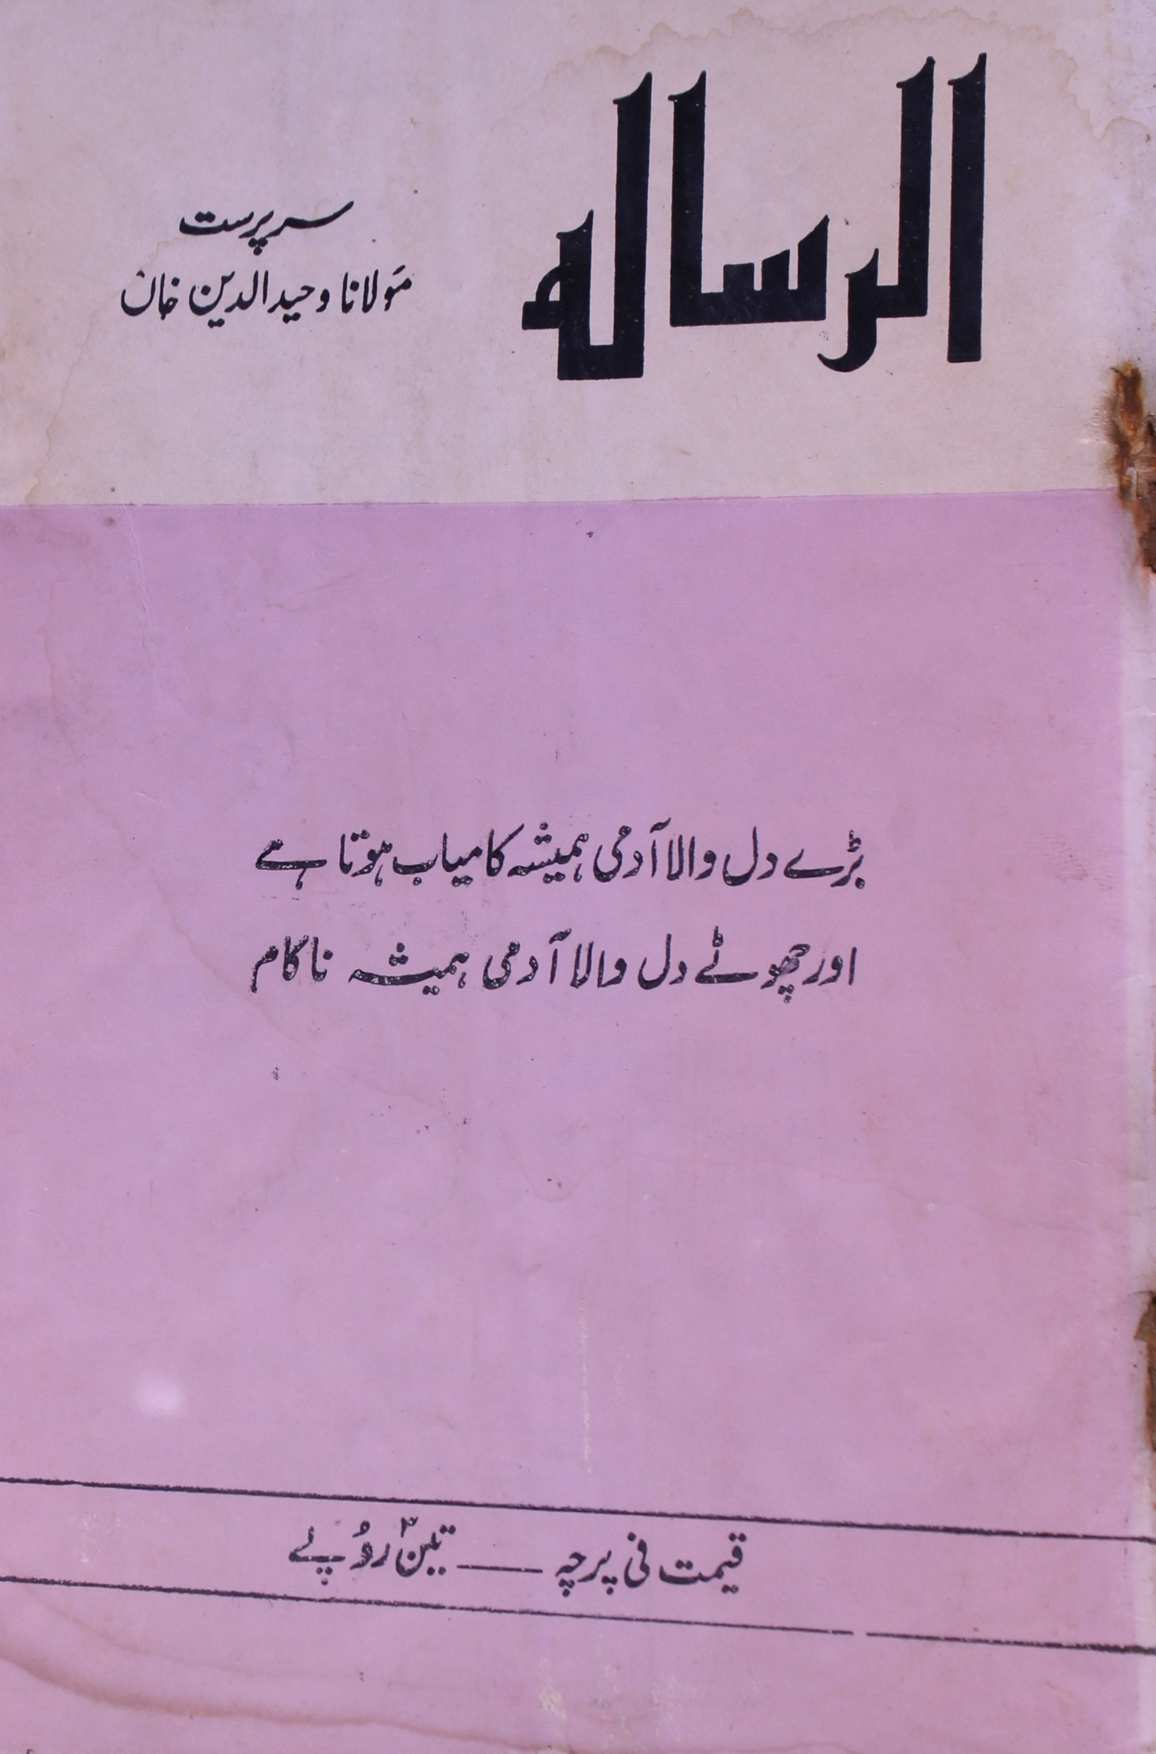 الرسالہ
سرپرست
مولانا وحیدالدین خان
بڑے دل والا آدمی ہمیشہ کامیاب ہوتا ہے
اور چھوٹے دل والا آدمی ہمیشہ ناکام
قیمت فی پرچہ — تین روپئے